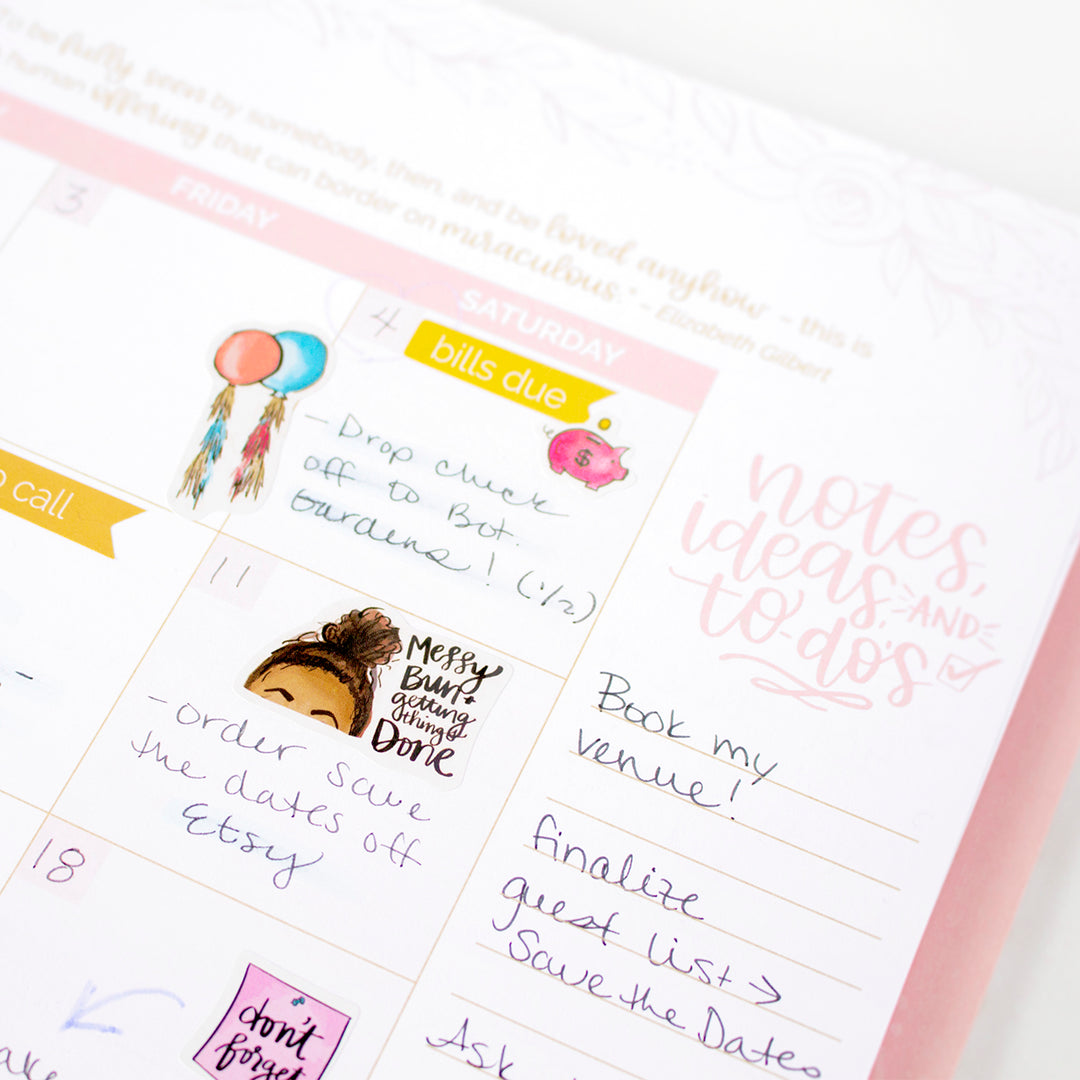 be fully seen by somebody, then, and be loved anyhow - this is
human offering that can border on miraculous." - Elizabeth Gilbert
FRIDAY
SATURDAY
3
4
bills due
- Drop check
off to Bot.
Gardens! (1/2)
$
call
11
Messy
Bun +
getting
things
Done
- order save
the dates off
Etsy
18
don't
forget
notes,
ideas, AND
to-do's
Book my
venue!
finalize
guest list →
Save the Dates
Ask